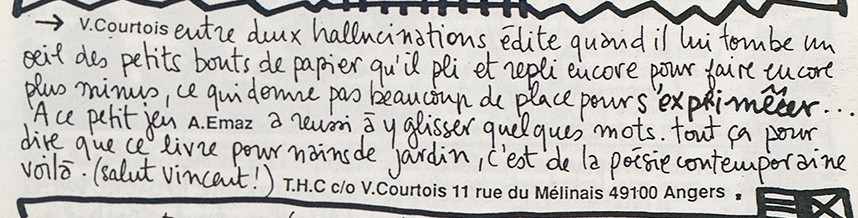 → V.Courtois entre deux hallucinations édite quand il lui tombe un
oeil des petits bouts de papier qu'il pli et repli encore pour faire encore
plus minus, ce qui donne pas beaucoup de place pour s'exprimêeer...
A ce petit jeu A.Emaz a reussi à y glisser quelques mots. tout ça pour
dire que ce livre pour nains de jardin, c'est de la poésie contemporaine
voilà. (salut vincent!) T.H.C c/o V.Courtois 11 rue du Mélinais 49100 Angers.